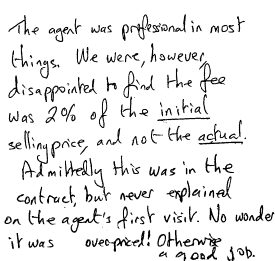 The agent was professional in most
things. We were, however,
disappointed to find the fee
was 2% of the initial
selling price, and not the actual.
Admittedly this was in the
contract, but never explained
on the agent's first visit. No wonder
it was overpriced! Otherwise
a good job.